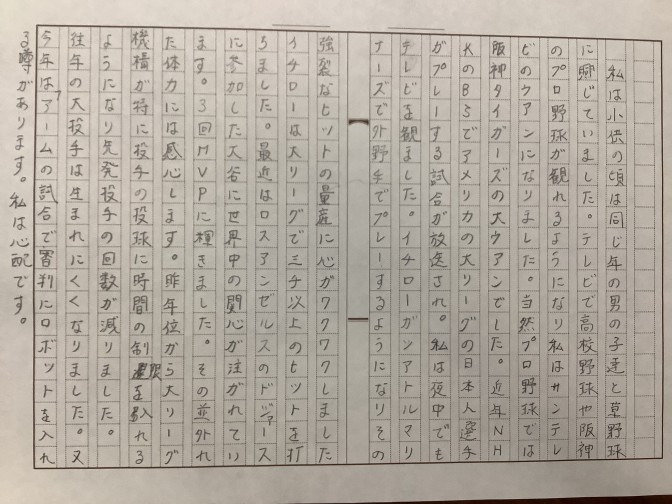 私は小供の頃は同じ年の男の子達と草野球
に興じていました。テレビで高校野球や阪神
のプロ野球が観れるようになり私はサンテレ
ビのファンになりました。当然プロ野球では
阪神タイガーズの大ファンでした。近年NH
KのBSでアメリカの大リーグの日本人選手
がプレーする試合が放送され。私は夜中でも
テレビを観ました。イチローがシアトルマリ
ナーズで外野手でプレーするようになりその
強裂なヒットの量産に心がワクワクしました
イチローは大リーグで三千以上のヒットを打
ちました。最近はロスアンゼルスのドジャース
に参加した大谷に世界中の関心が注がれてい
ます。3回MVPに輝きました。その並外れ
た体力には感心します。昨年位から大リーグ
機構が特に投手の投球に時間の制限を入れる
ようになり先発投手の回数が減りました。
往年の大投手は生まれにくくなりました。又
今年はアームの試合で審判にロボットを入れ
る噂があります。私は心配です。